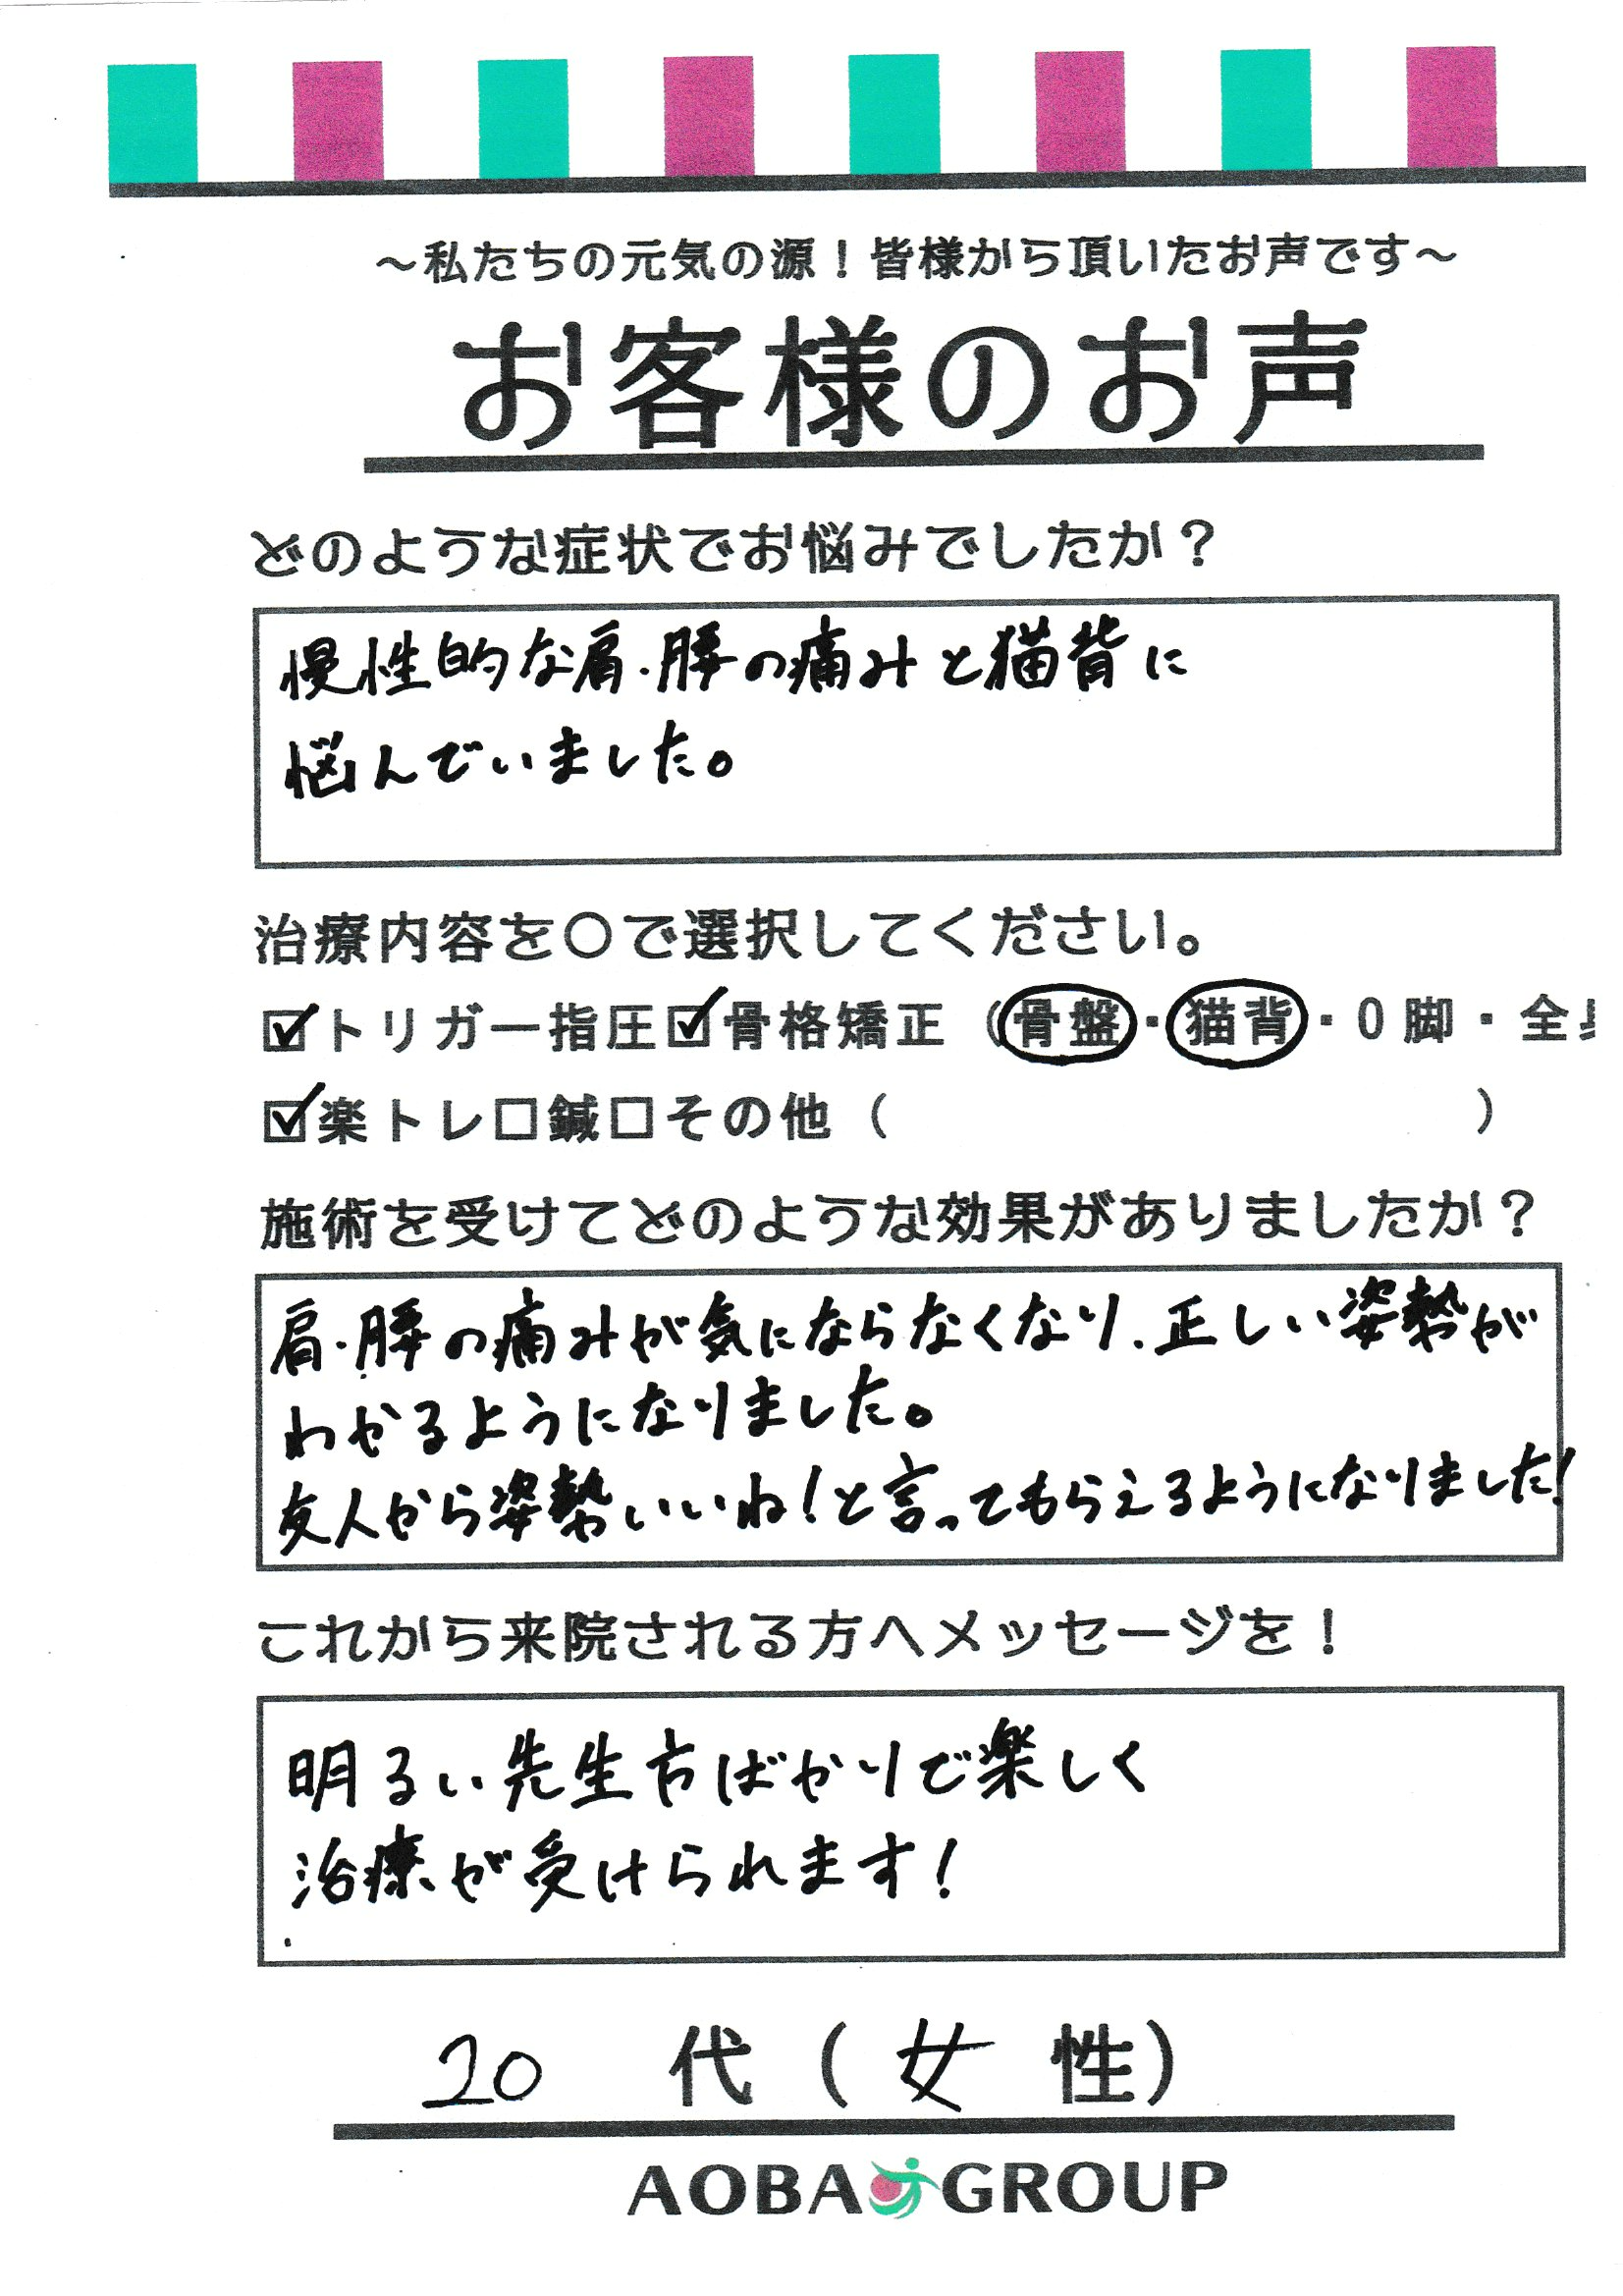 ～私たちの元気の源！皆様から頂いたお声です～
お客様のお声
どのような症状でお悩みでしたか？
慢性的な肩・腰の痛みと猫背に
悩んでいました。
治療内容を〇で選択してください。
☑トリガー指圧☑骨格矯正（骨盤・猫背・O脚・全
☑楽トレ□鍼□その他（　　　　　　　　　　）
施術を受けてどのような効果がありましたか？
肩・腰の痛みが気にならなくなり、正しい姿勢が
わかるようになりました。
友人から姿勢いいね！と言ってもらえるようになりました！
これから来院される方へメッセージを！
明るい先生方ばかりで楽しく
治療が受けられます！
20 代（女性）
AOBA GROUP